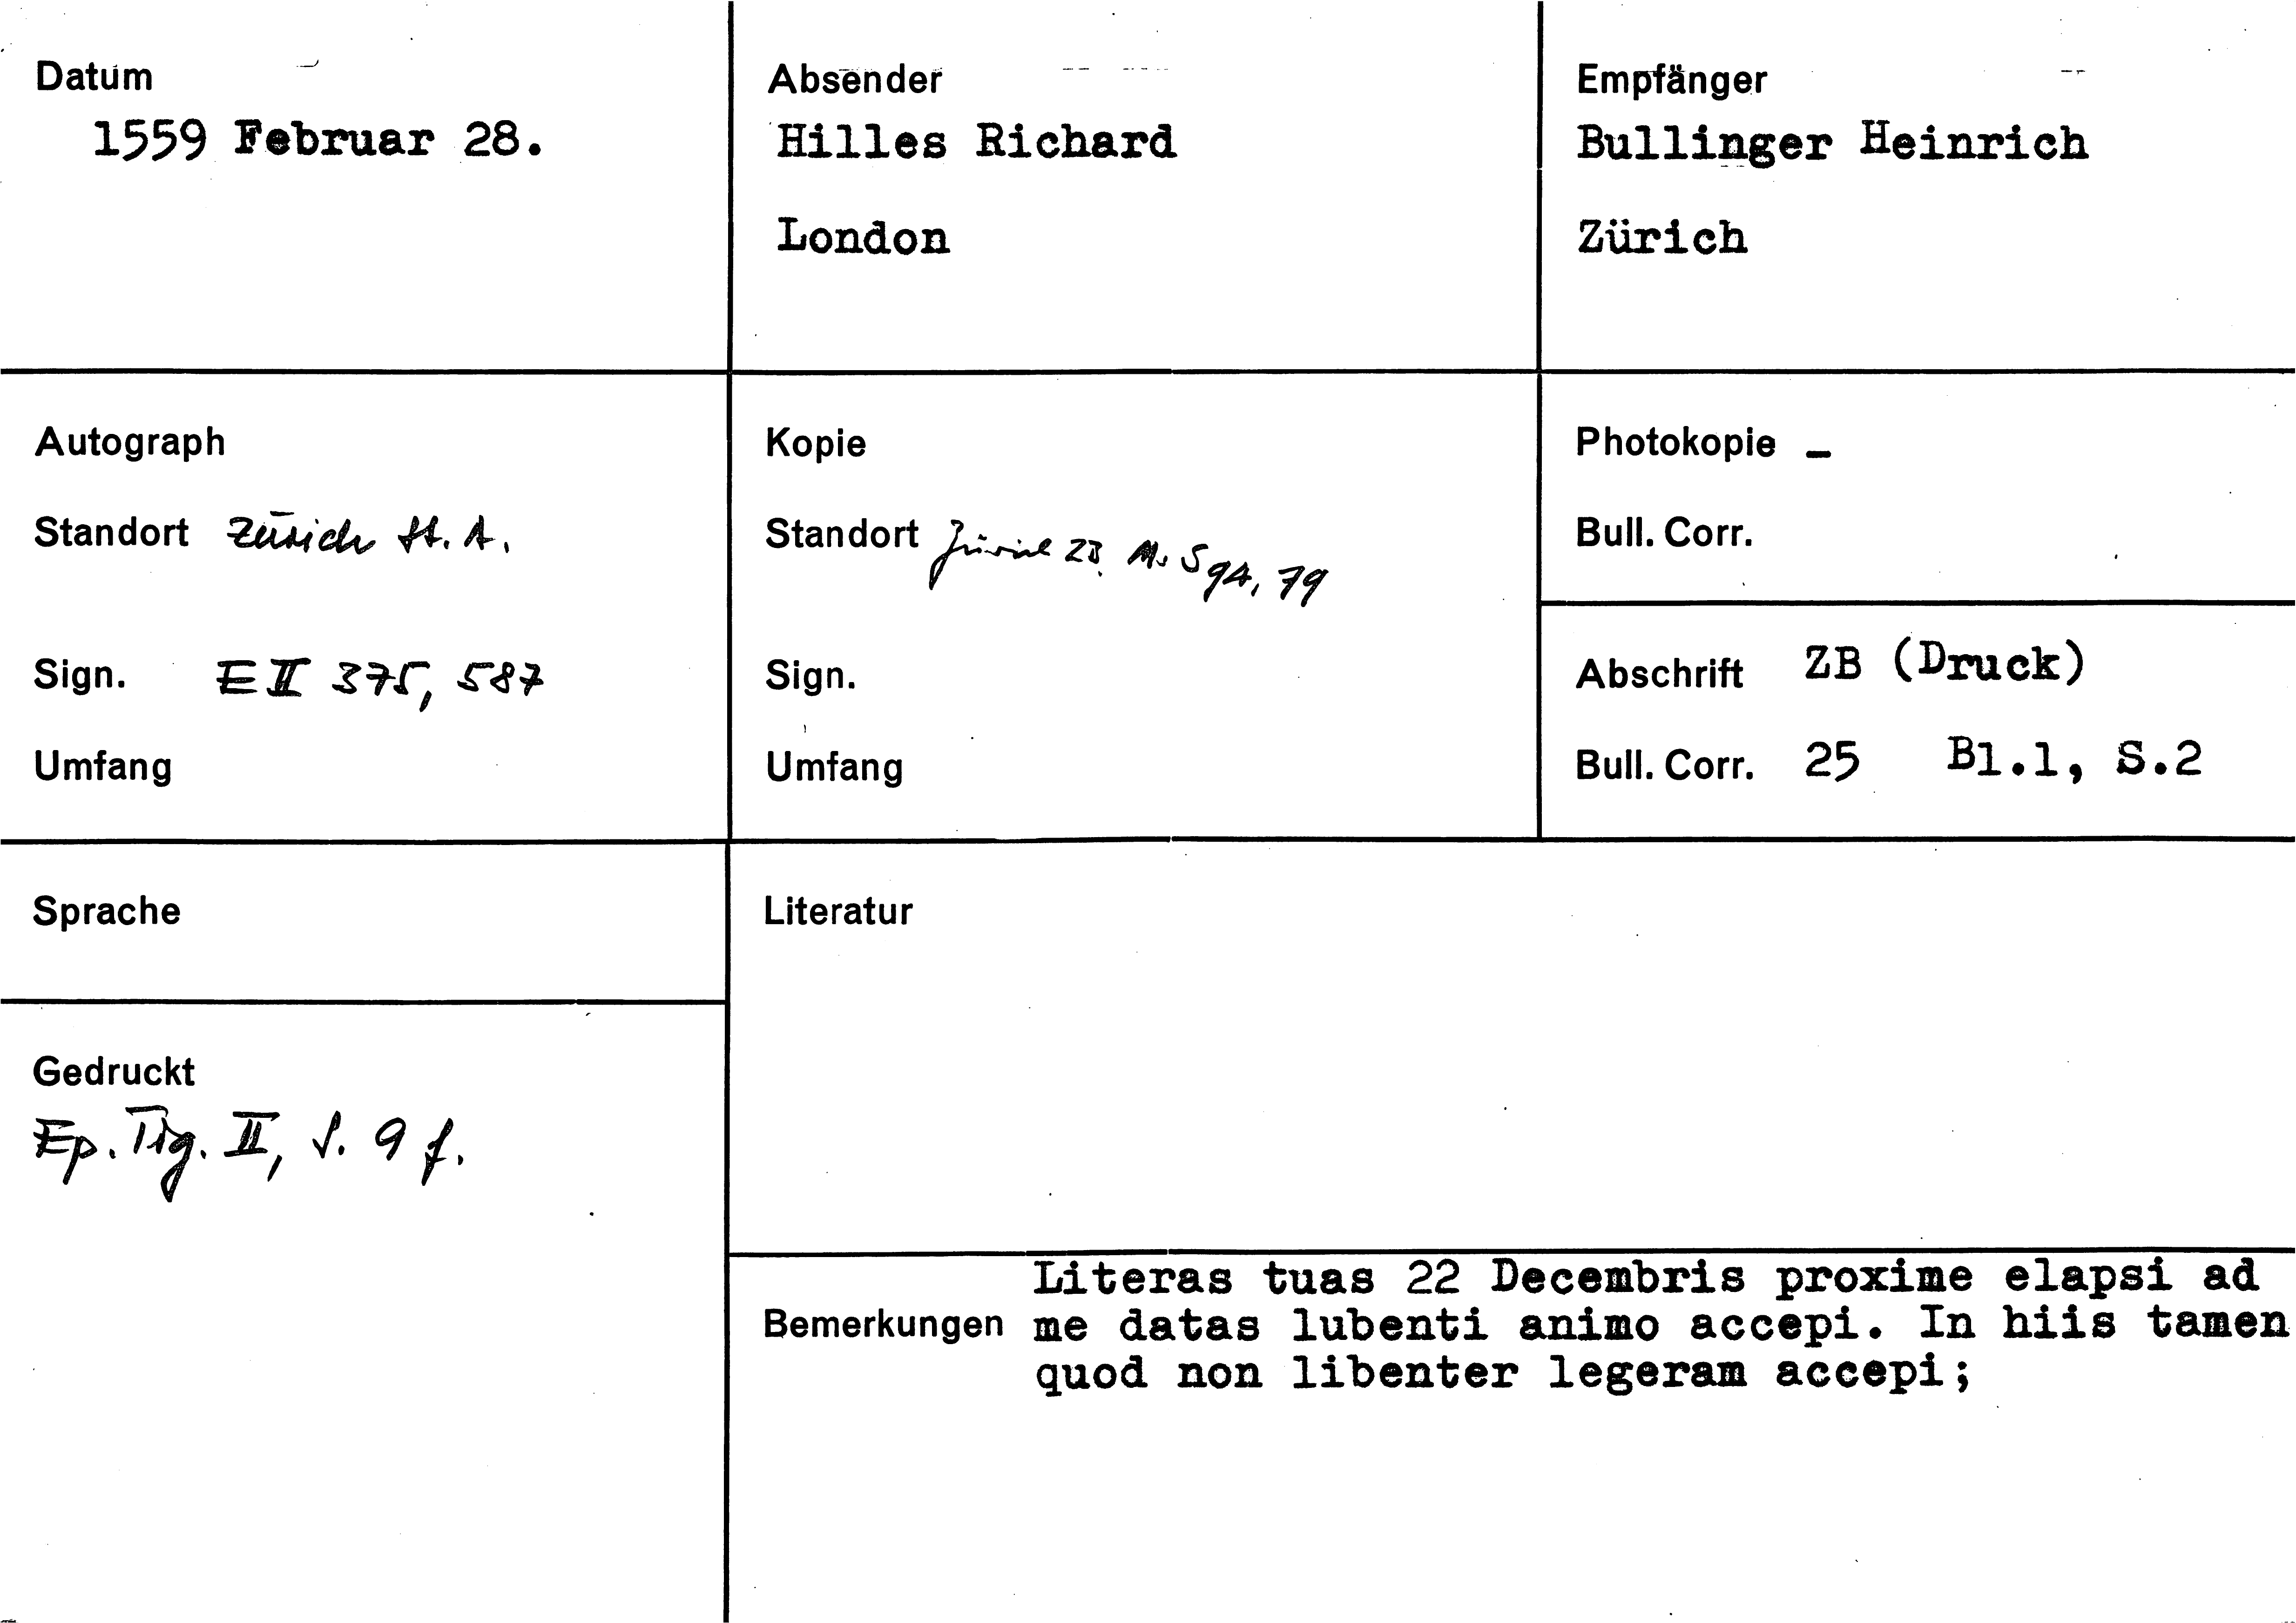 Datum
1559 Februar 28.
Absender
Hilles Richard
London
Empfänger
Bullinger Heinrich
Zürich
Autograph
Standort Zürich St. A.
Sign. E II 375, 587
Umfang
Kopie
Standort Zürich ZB. Ms S 94, 79
Sign.
Umfang
Photokopie –
Bull. Corr.
Abschrift ZB (Druck)
Bull. Corr. 25 Bl.1, S.2
Sprache
Literatur
Gedruckt
Ep. Tig. II, S. 9 f.
Bemerkungen
Literas tuas 22 Decembris proxime elapsi ad
me datas lubenti animo accepi. In hiis tamen
quod non libenter legeram accepi;